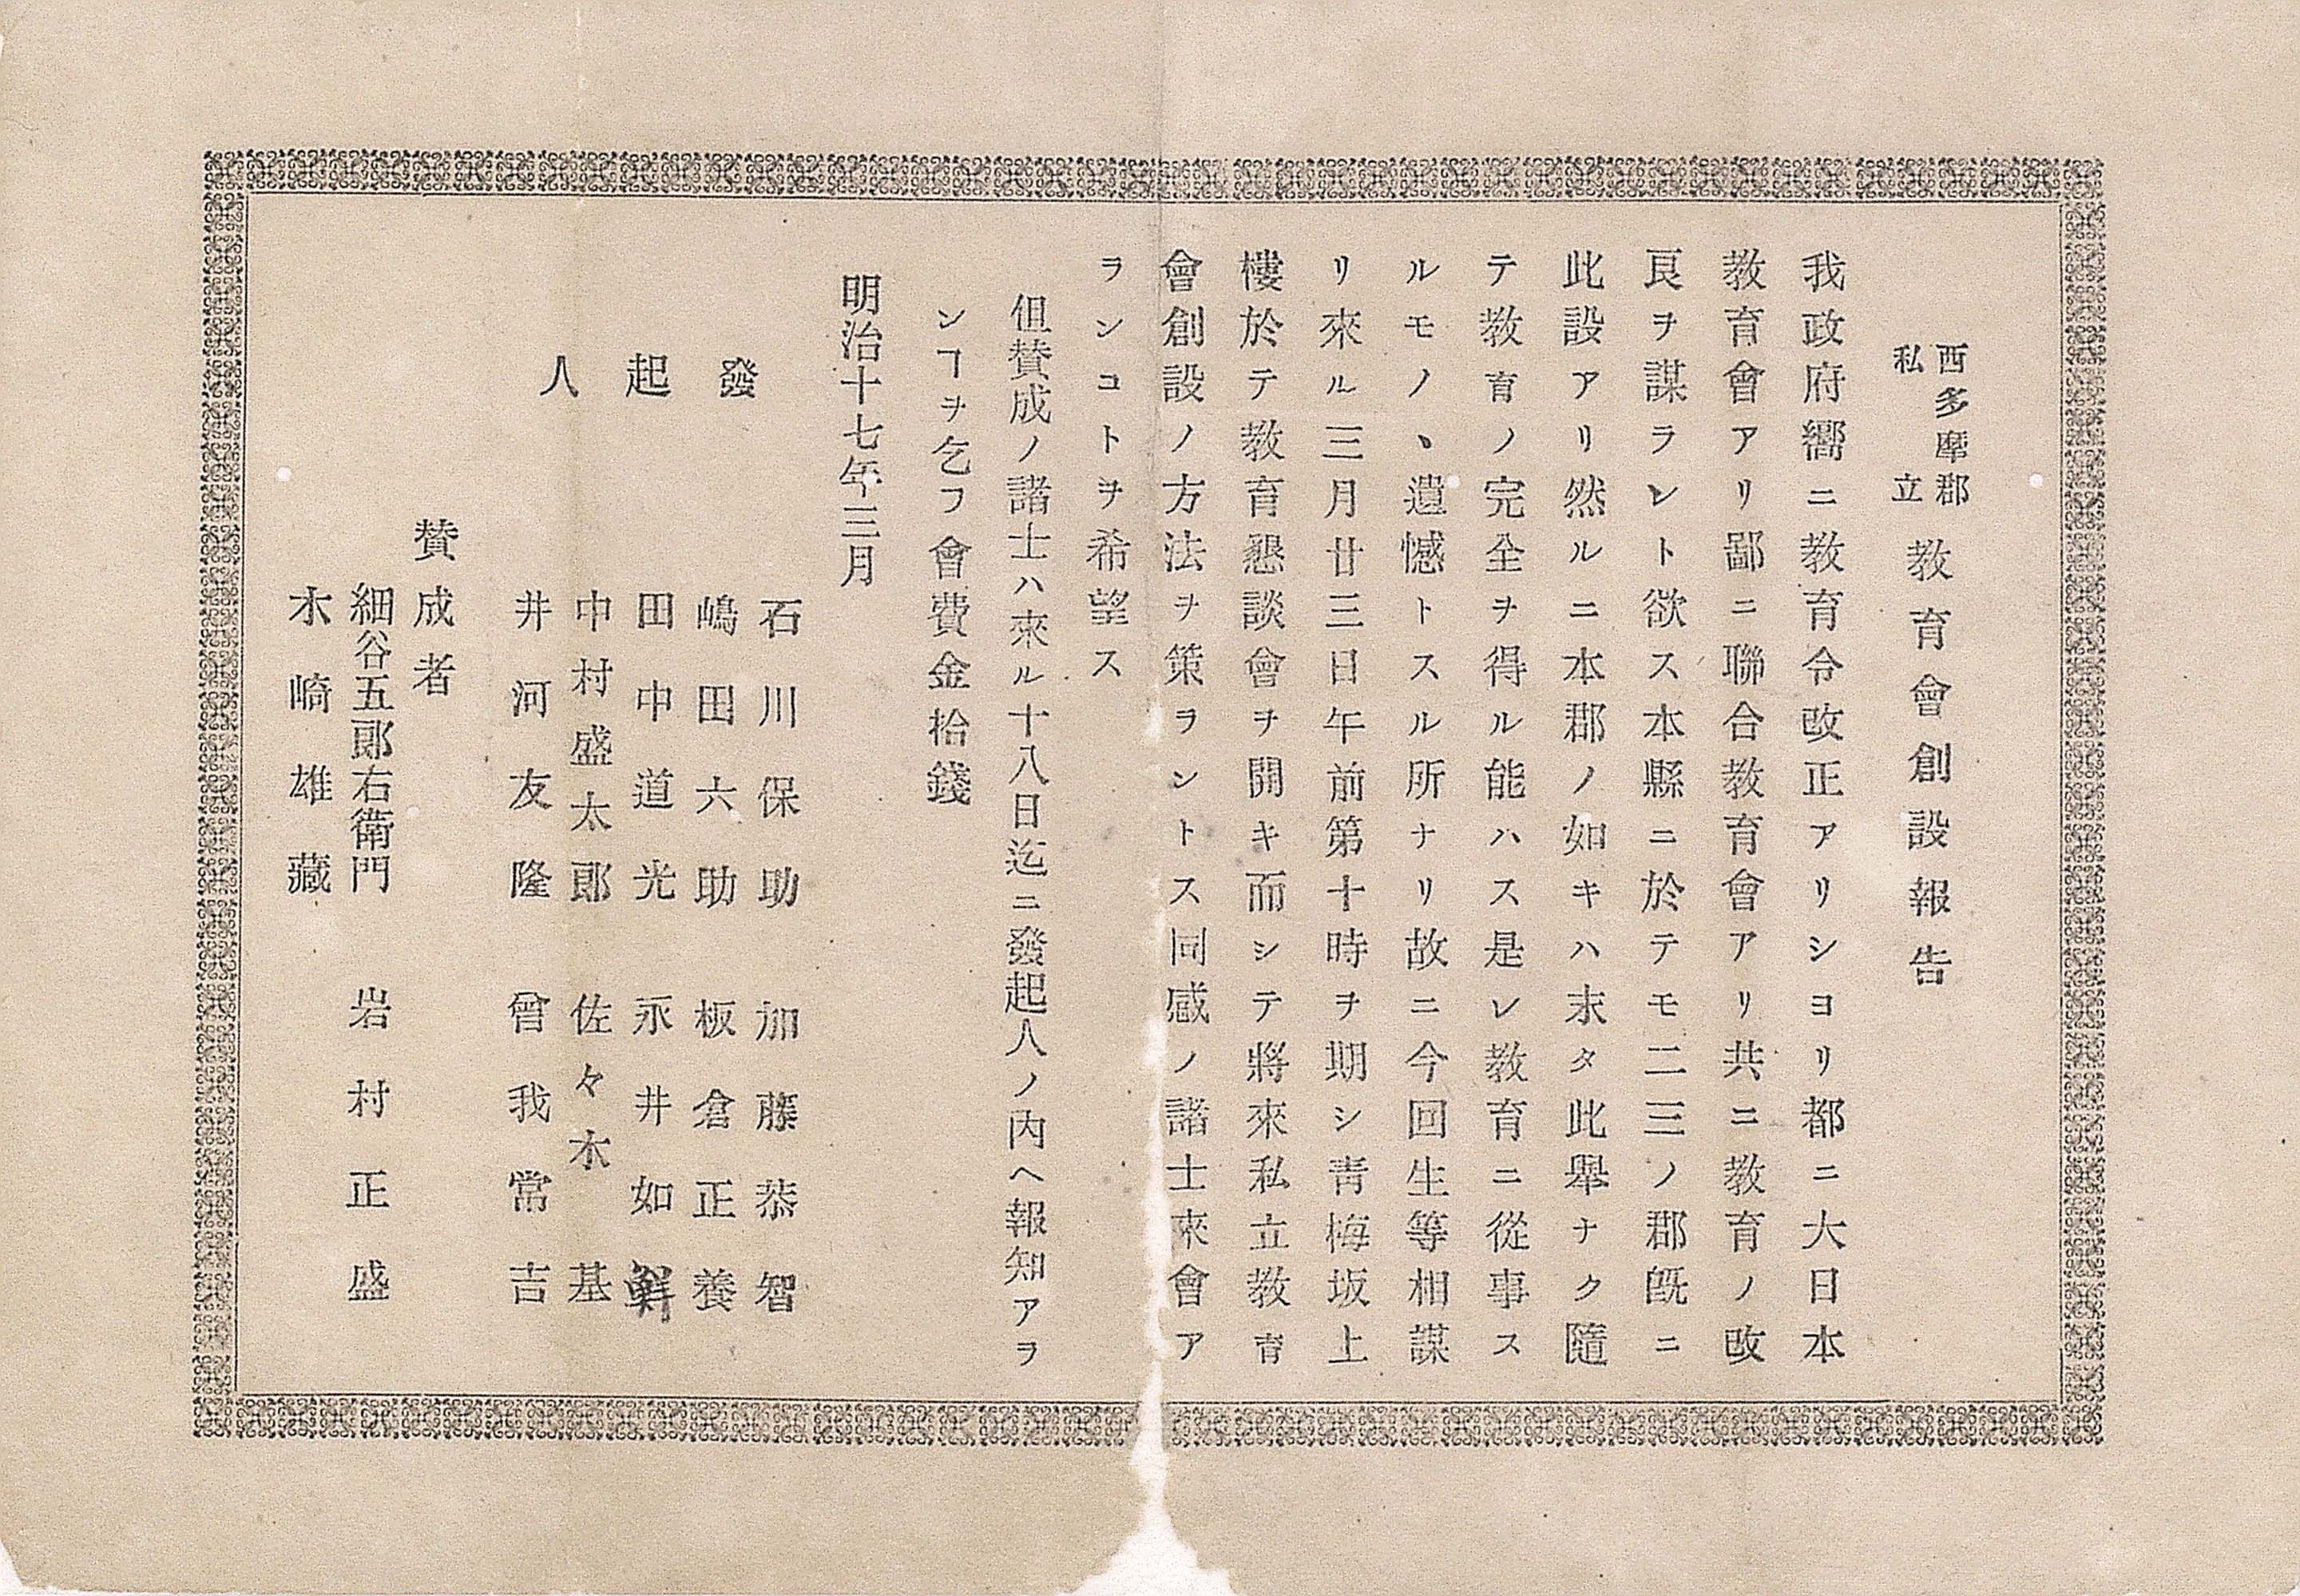 西多摩郡
私立
教育會創設報告
我政府嚮ニ教育令改正アリシヨリ都ニ大日本
教育會アリ鄙ニ聯合教育會アリ共ニ教育ノ改
良ヲ謀ラント欲ス本縣ニ於テモ二三ノ郡既ニ
此設アリ然ルニ本郡ノ如キハ末タ此擧ナク隨
テ教育ノ完全ヲ得ル能ハス是レ教育ニ從事ス
ルモノヽ遺憾トスル所ナリ故ニ今回生等相謀
リ來ル三月廿三日午前第十時ヲ期シ靑梅坂上
樓於テ教育懇談會ヲ開キ而シテ將來私立教育
會創設ノ方法ヲ策ラントス同感ノ諸士來會ア
ランコトヲ希望ス
但賛成ノ諸士ハ來ル十八日迄ニ發起人ノ内ヘ報知アラ
ンヿヲ乞フ會費金拾錢
明治十七年三月
發起人
石川保助　加藤恭智
嶋田六助　板倉正養
田中道光　永井如鮮
中村盛太郎　佐々木基
井河友隆　曾我常吉
賛成者
細谷五郎右衛門　岩村正盛
木崎雄藏